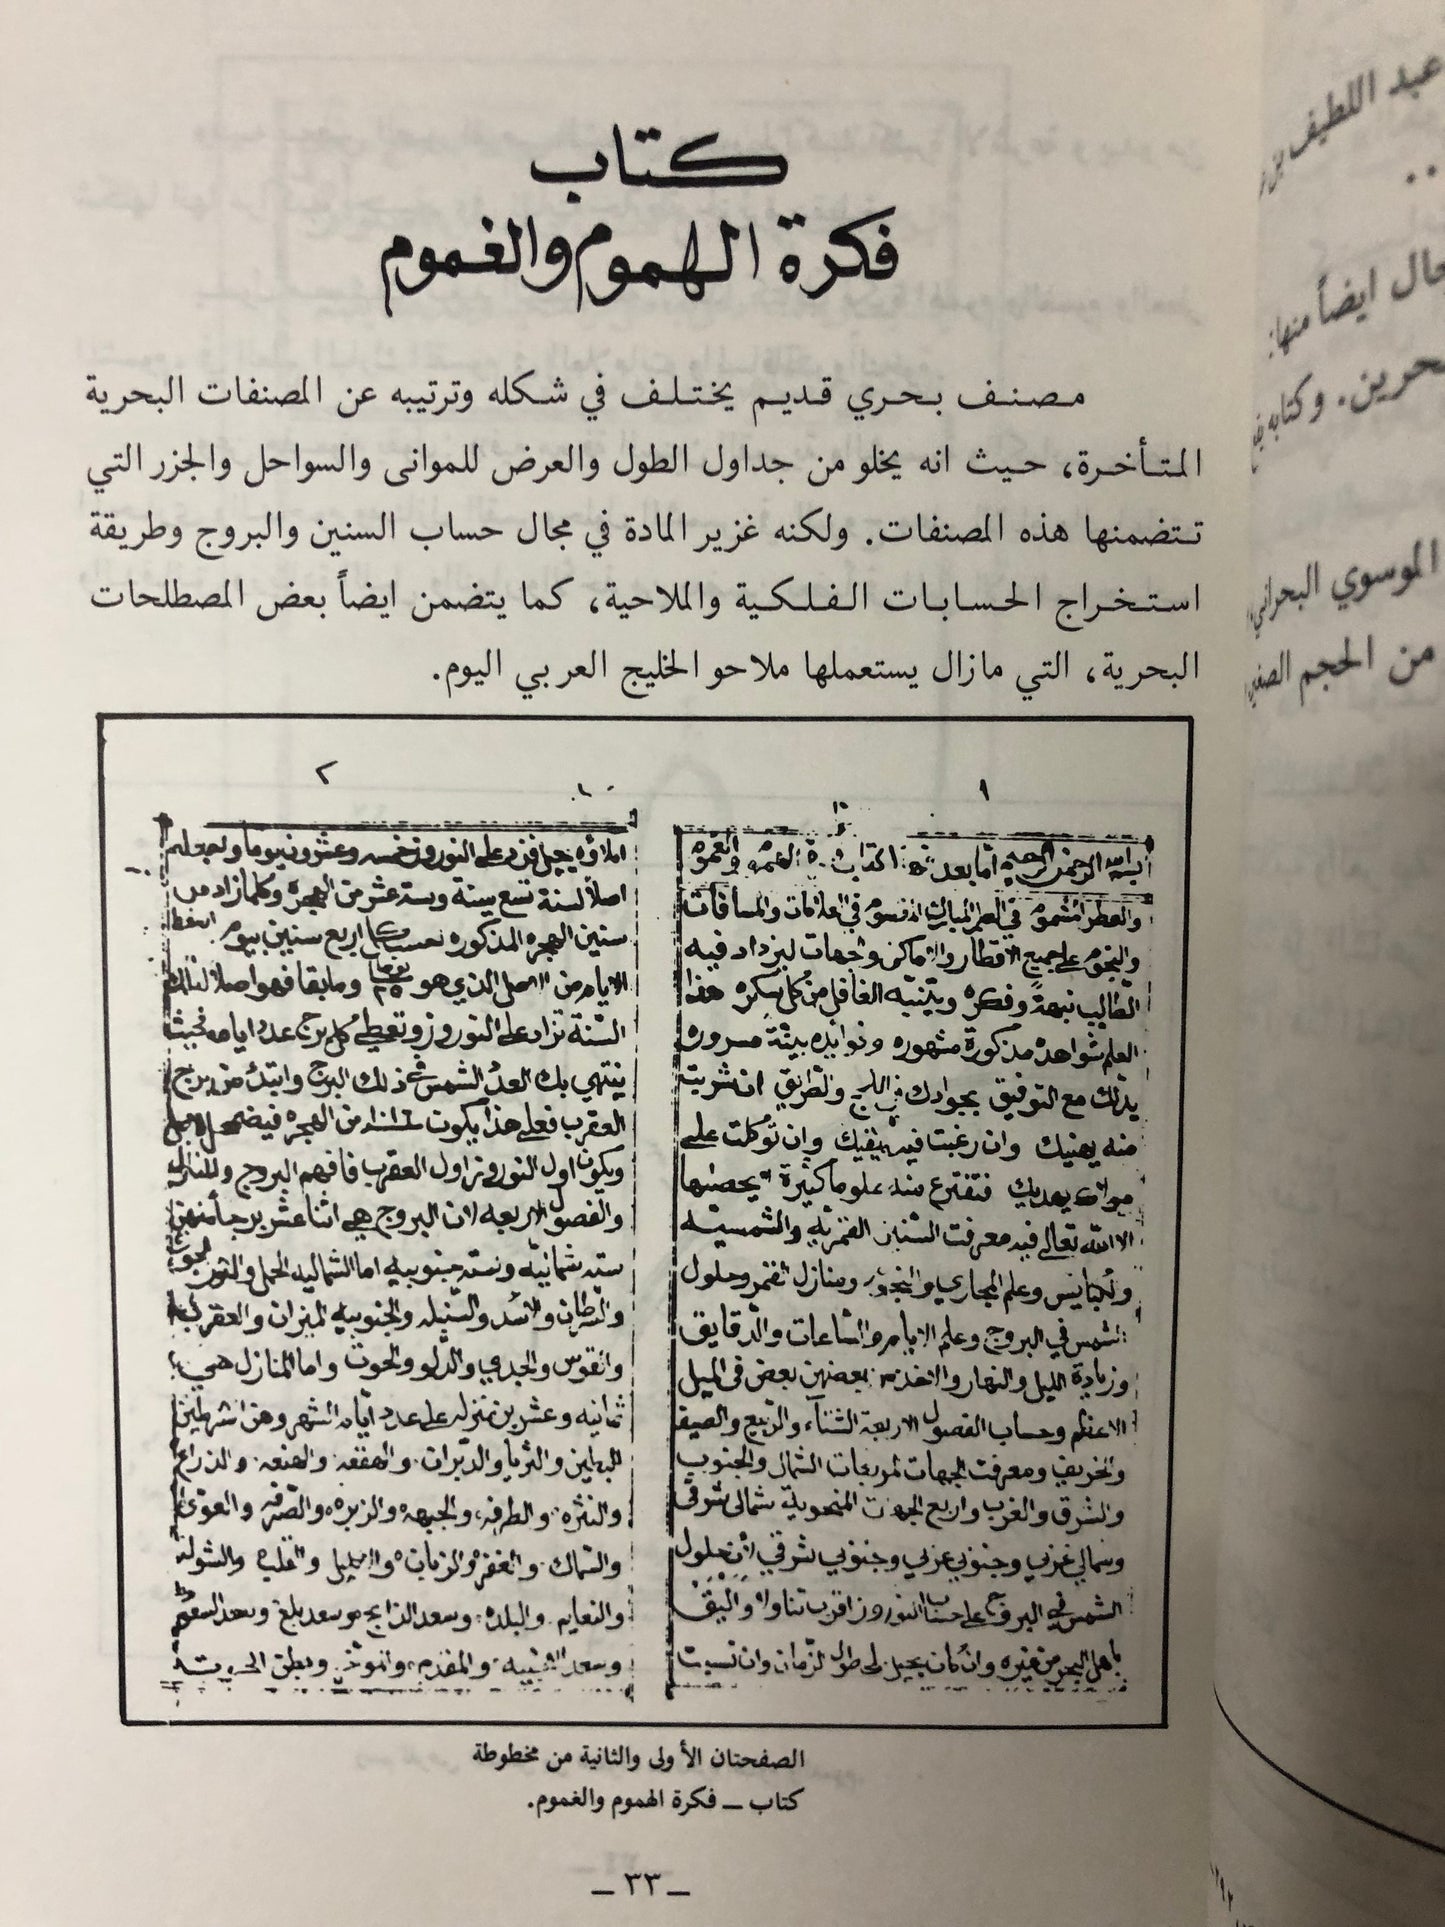 كتاب
فكرة الهموم والغموم
مصنف بحري قديم يختلف في شكله وترتيبه عن المصنفات البحرية
المتأخرة، حيث انه يخلو من جداول الطول والعرض للموانى والسواحل والجزر التي
تتضمنها هذه المصنفات. ولكنه غزير المادة في مجال حساب السنين والبروج وطريقة
استخراج الحسابات الفلكية والملاحية، كما يتضمن ايضاً بعض المصطلحات
البحرية، التي مازال يستعملها ملاحو الخليج العربي اليوم.
١
الرحمن الرحيم اما بعد الكتاب
والعطر المشموم في العلم المبارك المقسوم في العلامات والمسافات
والنجوم على جميع الاقطار والاماكن وجهات ليزداد فيه
الطالب نبهة وفكره ويتنبه الغافل من كل سكره هذا
العلم شواهده مذكورة مشهوره وفوايده بينة
بذلك مع التوفيق بجوادك والطريق ان شربت
منه يهنيك وان رغبت فيه وان توكلت على
مولاك يهديك فتفترع منه علوما كثيرة لا يحصيها
الا الله تعالى فيه معرفت السنين القمريه والشمسيه
والكبايس وعلم المجاري والنجوم ومنازل القمر وحلول
الشمس في البروج وعلم الايام والساعات والدقايق
وزيادة الليل والنهار بعضهن بعض في الميل
الاعظم وحساب الفصول الاربعة الشتاء والربيع والصيف
والخريف ومعرفت الجهات المربعات الشمال والجنوب
والشرق والغرب واربع الجهات شمالي شرقي
وشمالي غربي وجنوبي غربي وجنوبي شرقي لأن حلول
الشمس في البروج على حساب النوروز اقرب تناولا واليق
باهل البحر من غيره وان كان يحيل في طول الزمان وان نسيت
٢
على النوروز خمسه وعشرون يوما واجعلهم
اصلا لسنة تسع ميئة وسته عشر من الهجره وكلما زاد من
سنين الهجره المذكوره تحسب كل اربع سنين بيوم اسقط
الايام من الاصل الذي هو ٢٥ يوما وما بقا فهو اصلا لتلك
السنة تزاد على النوروز وتعطي كل برج عدد ايامه فحيث
ينتهي بك العدد الشمس في ذلك البرج وابتدئ من برج
العقرب فعلى هذا يكون من الهجره فيضمحل الاصل
ويكون اول النوروز اول العقرب فافهم البروج والمنازل
والفصول الاربعه لان البروج هي اثنا عشر برجا منهن
سته شماليه وسته جنوبيه اما الشماليه الحمل والثور والجوزا
والسرطان والاسد والسنبله والجنوبيه الميزان والعقرب
والقوس والجدي والدلو والحوت واما المنازل هي
ثمانيه وعشرين منزله على عدد ايام الشهر وهن الشرطين
البطين والثريا والدبران والهقعه والهنعه والذراع
والنثره والطرفه والجبهه والزبره والصرفه والعوى
والسماك والغفر والزبانا والاكليل والقلب والشوله
والنعايم والبلده وسعد الذابح وسعد بلع وسعد السعود
وسعد الاخبيه والمقدم والموخر وبطن الحوت
الصفحتان الأولى والثانية من مخطوطة
كتاب ـ فكرة الهموم والغموم.
ـ ٣٣ ـ
عبد اللطيف بن
ايضاً منها:
وكتابه
الموسوي البحراني
من الحجم